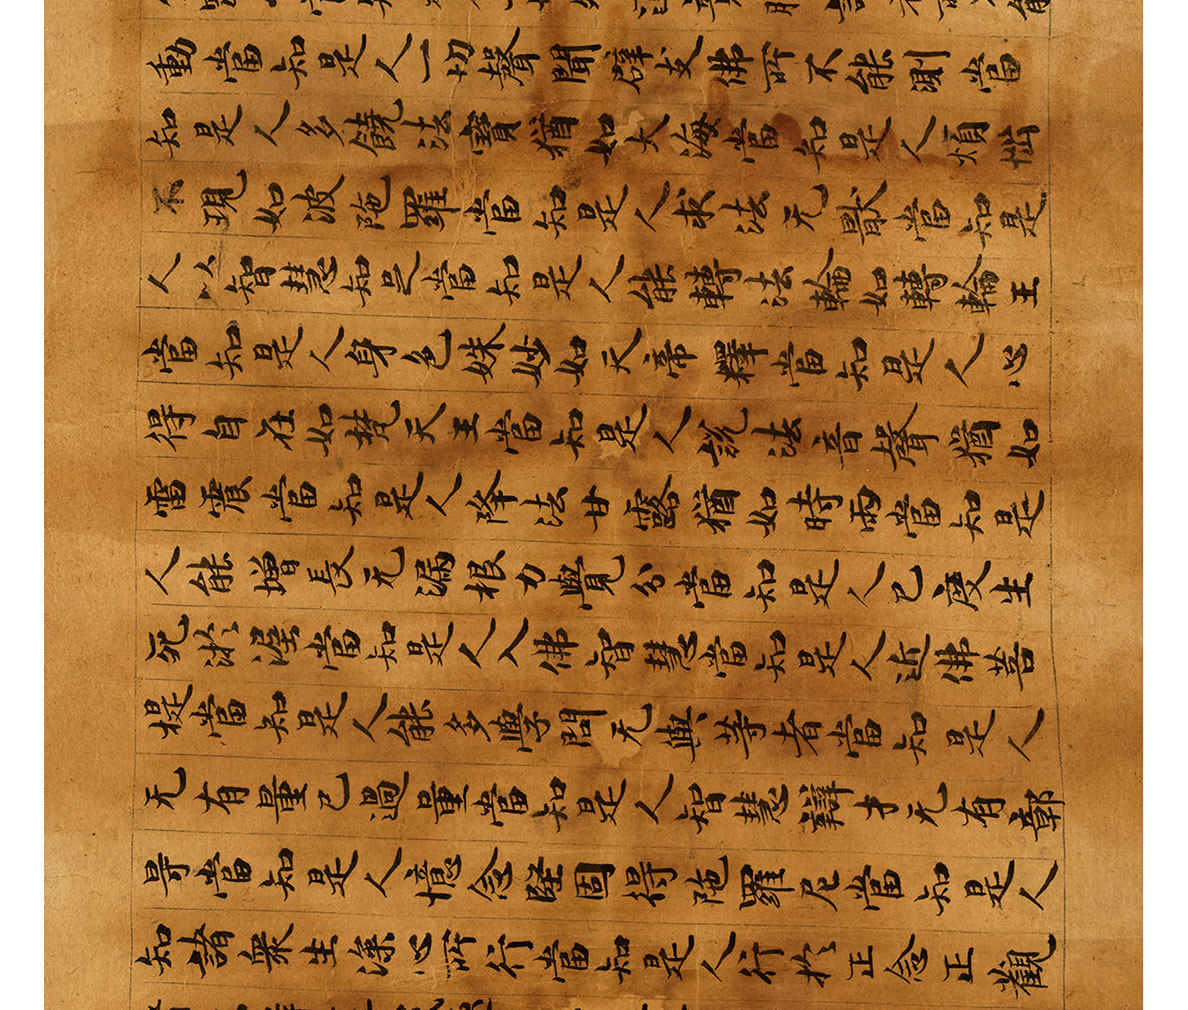 動當知是人一切聲聞辟支佛所不能測當
知是人多饒法寶猶如大海當知是人煩惱
不現如波陁羅當知是人求法无猒當知是
人以智慧知足當知是人能轉法輪如轉輪王
當知是人身色姝妙如天帝釋當知是人心
得自在如梵天王當知是人說法音聲猶如
雷震當知是人降法甘露猶如時雨當知是
人能增長无漏根力覺分當知是人已度生
死淤埿當知是人入佛智慧當知是人近佛菩
提當知是人能多學問无與等者當知是人
无有量已過量當知是人智慧辯才无有鄣
㝵當知是人憶念堅固得陁羅尼當知是人
知諸衆生深心所行當知是人行於正念正觀